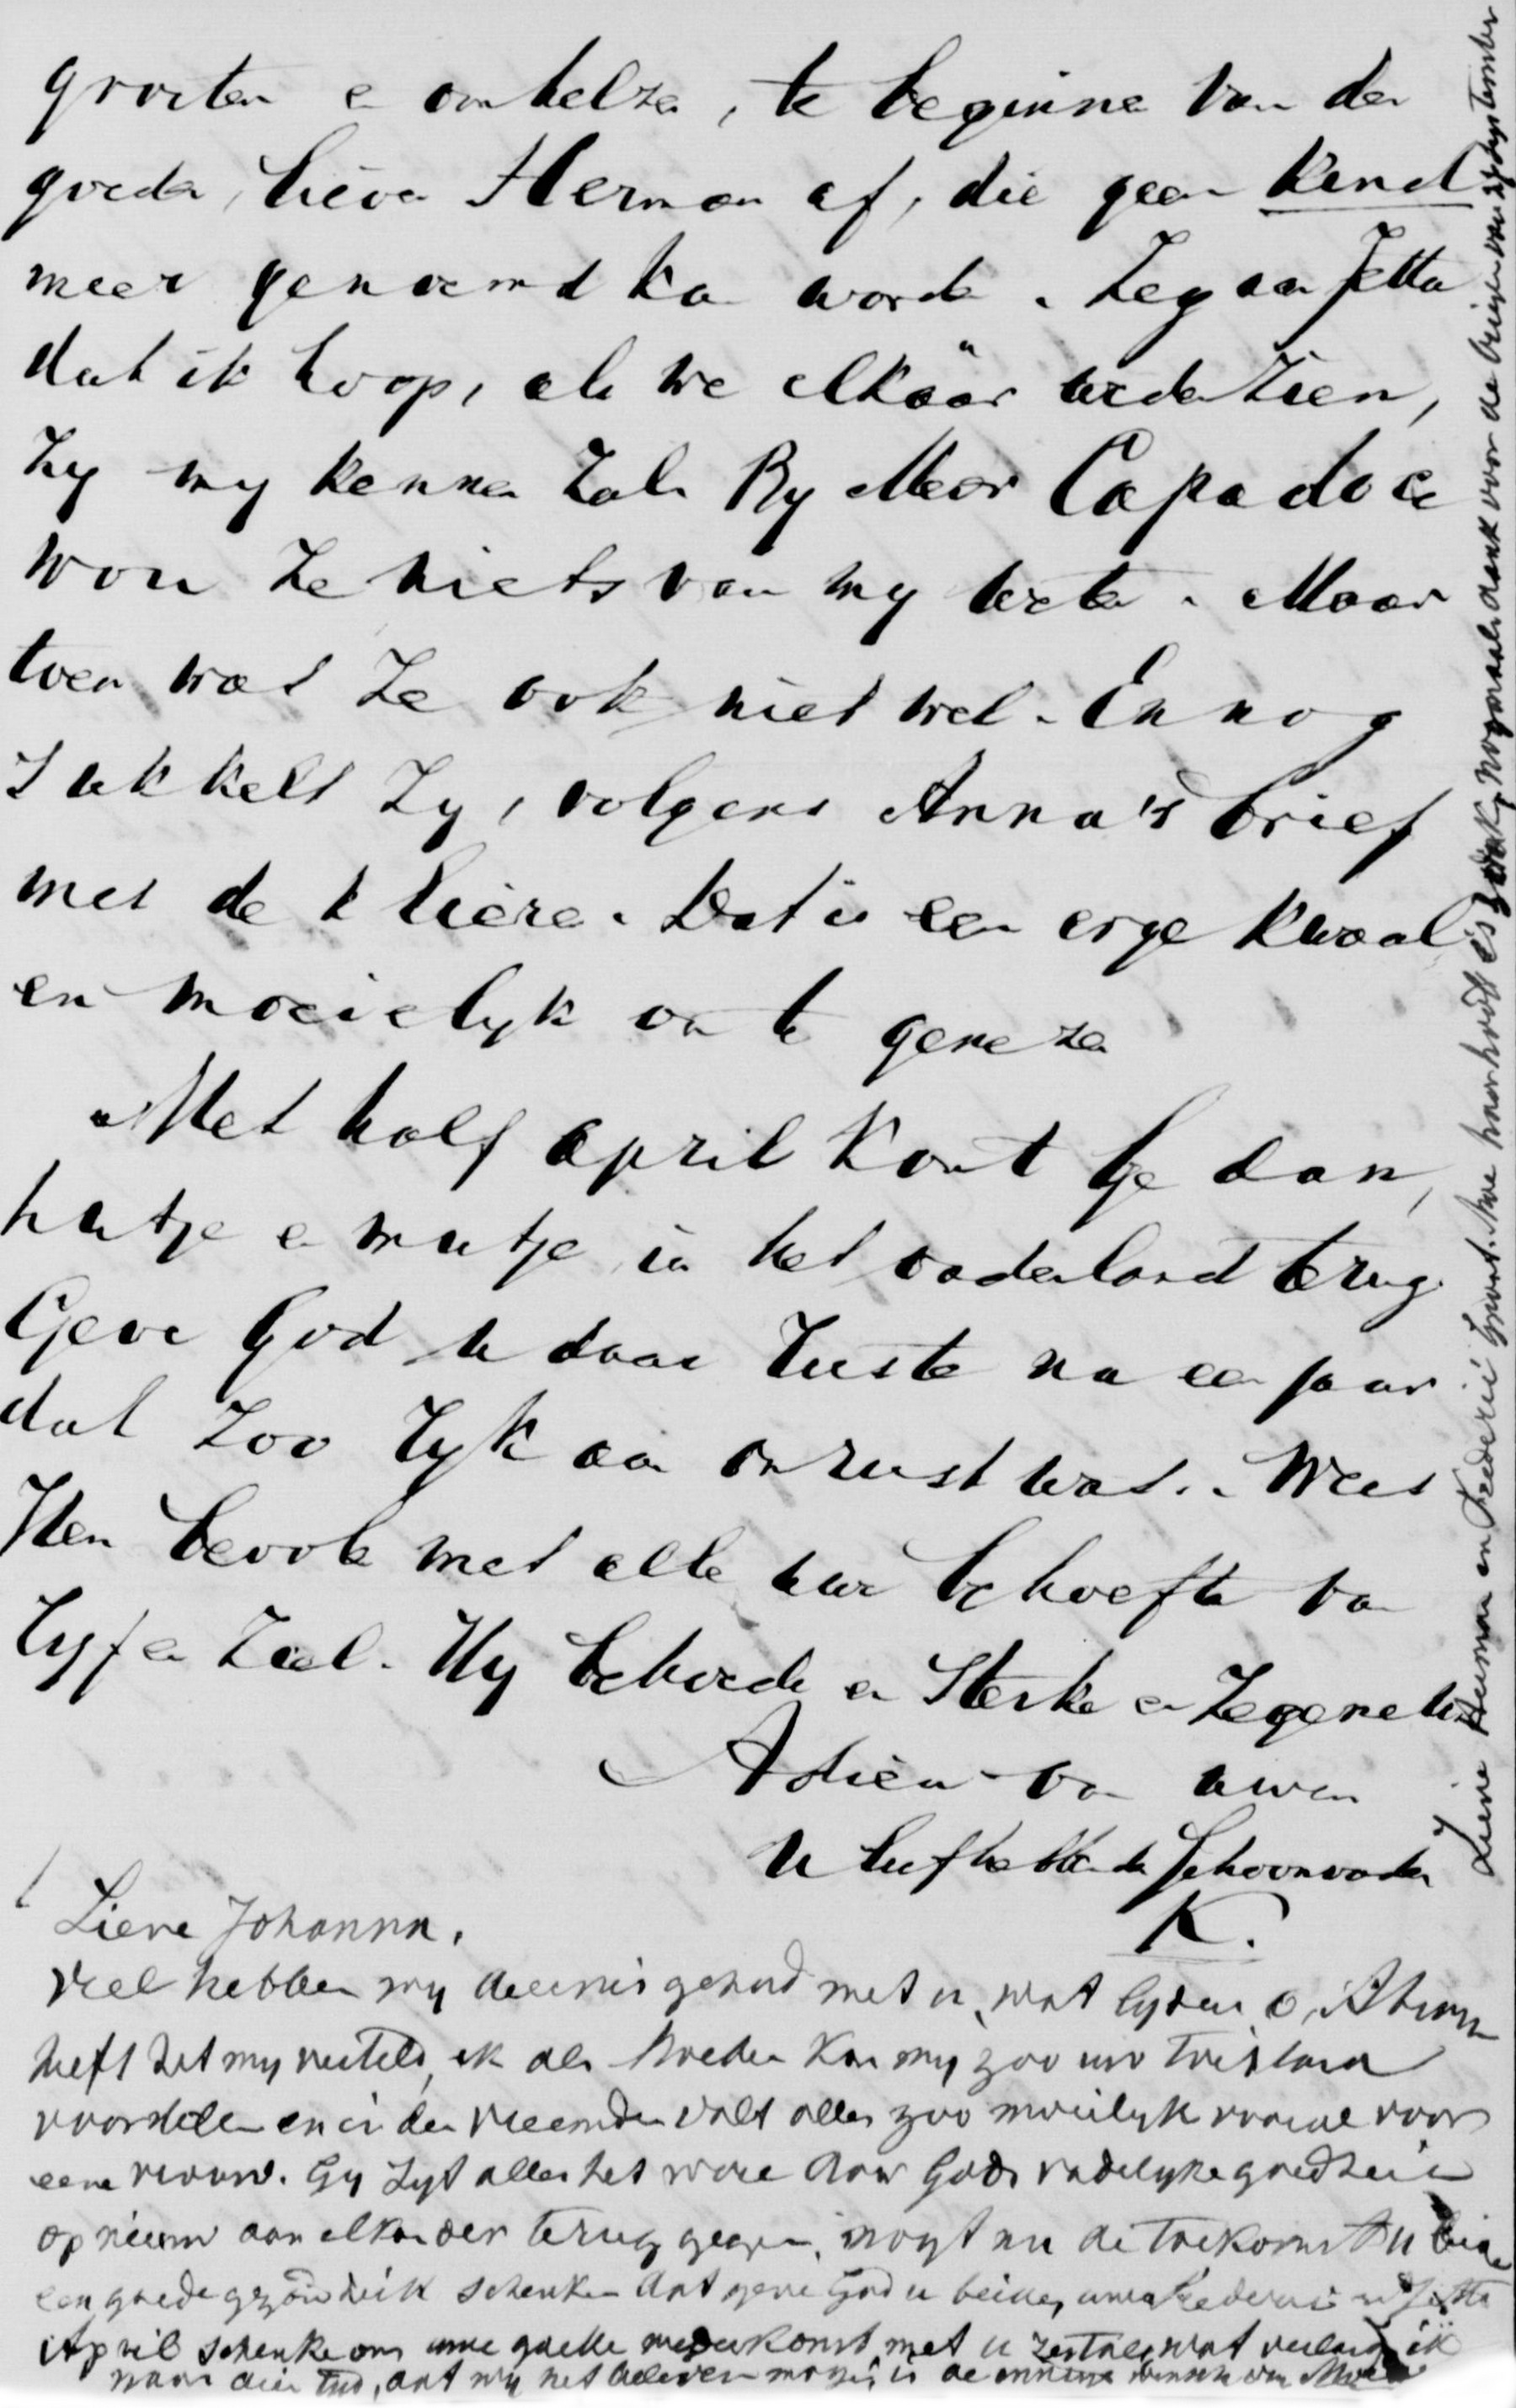 groeten en omhelzen, te beginnen van den
goeden, lieven Herman af, die geen kind
meer genoemd kan worden. Zeg aan Jetta
dat ik hoop, als we elkäar wederzien,
zy my kennen zal. By Mevr Capadoce
wou ze niets van my weten. Maar
toen was ze ook niet wel. En nog
sukkelt zy, volgens Anna's brief
met de klieren. Dat is een erge kwaal
en moeielyk om te genezen
Met half april komt ge dan,
hutje en mutje in het vaderland terug.
Geve God u daar ruste na een jaar
dat zoo ryk aan onrust was. Wees
Hem bevolen met alle uwe behoeften van
lyf en ziel. Hy behoede en sterke en zegene u
Adieu van uwen
u liefhebbenden Schoonvader
K.
Lieve Johanna,
Veel hebben wy deernis gehad met u, wat lyden o, Athum
heeft het my verteld, ik als Moeder kan my zoo uw toestand
voorstellen en in den vreemden valt alles zoo moeilyk vooral voor
eene vrouw. Gy zyt als het ware door Gods vaderlyke goedheid
op nieuw aan elkander terug gegeven, mogt nu de toekomst u beide
een goede gezondheid schenken dat geve God u beiden, uwe Frederic en Jetta
April schenke ons eene goede wederkomst met u zestal, wat verlang ik
naar dien tyd, dat wy het beleven mogen, is de innige wensch van Moeder
Lieve Herman en Frederic groot. hoe haar hoofd is zwak, nogmaals dank voor de brieven van